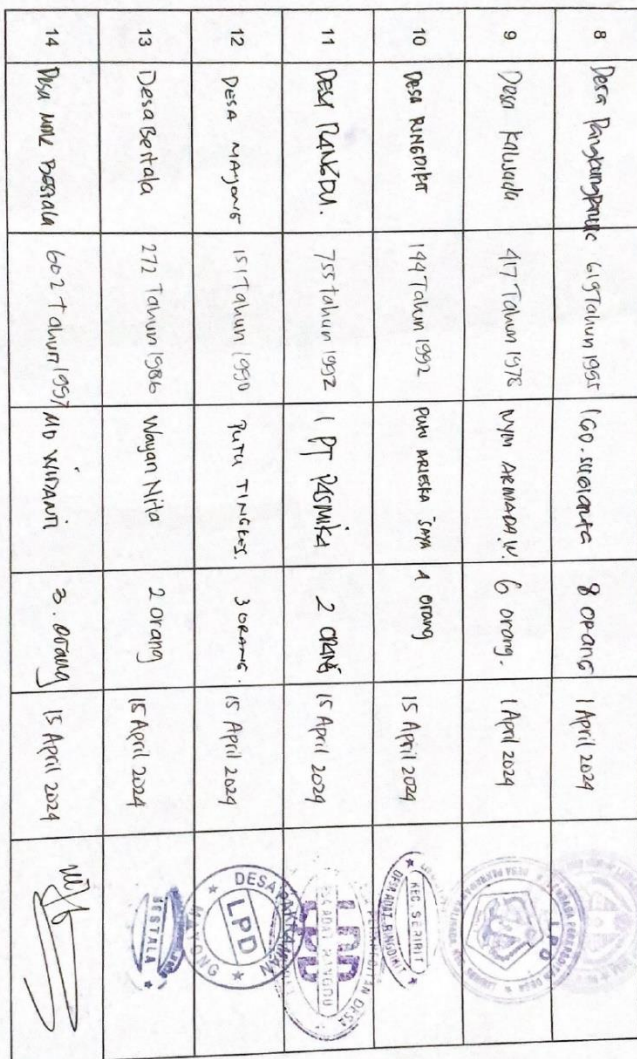 8 Desa Pangkungparuk 619 Tahun 1995 8 orang 1 April 2024
9 Desa Kalwada 417 Tahun 1978 NYM ARMADA W 6 orang. 1 April 2024
10 Desa RINGDIKIT 144 Tahun 1992 PUTU 1 orang 15 April 2024
KEC. SERIRIT
DESA ADAT. RINGDIKIT
11 DESA RANGDU. 755 Tahun 1992 I PT 2 ORANG 15 April 2024
LPD
DESA ADAT RANGDU
12 DESA MAYONG 151 Tahun 1990 PUTU TINGKES. 3 ORANG. 15 April 2024
DESA PAKRAMAN
LPD
MAYONG
13 Desa Bestala 272 Tahun 1986 Wayan Nita 2 orang 15 April 2024
BESTALA
14 Desa Bestala 602 Tahun 1997 MD WIDANI 3. orang 15 April 2024